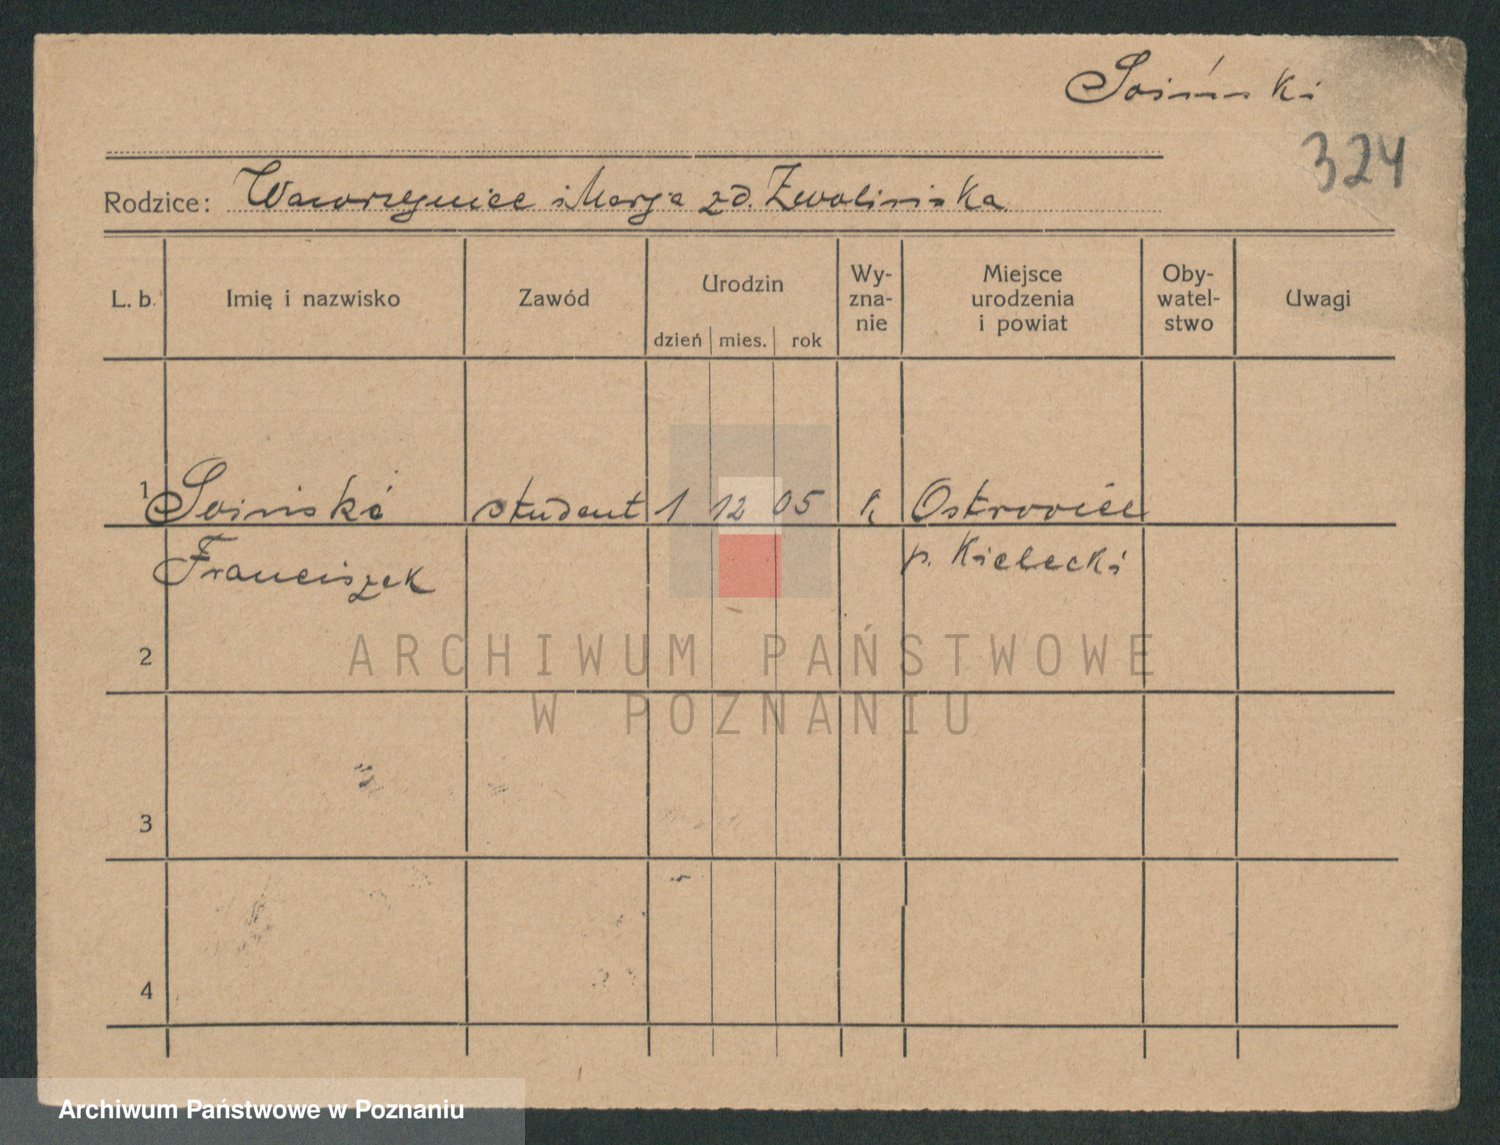 Soiński
324
Rodzice: Wawrzyniec i Marja zd. Zwolińska
L. b. Imię i nazwisko Zawód Urodzin dzień mies. rok Wy-zna-nie Miejsce urodzenia i powiat Oby-watel-stwo Uwagi
1 Soiński student 1 12 05 k Ostrowiec
Franciszek p. Kielecki
2
ARCHIWUM PAŃSTWOWE
W POZNANIU
3
4
Archiwum Państwowe w Poznaniu